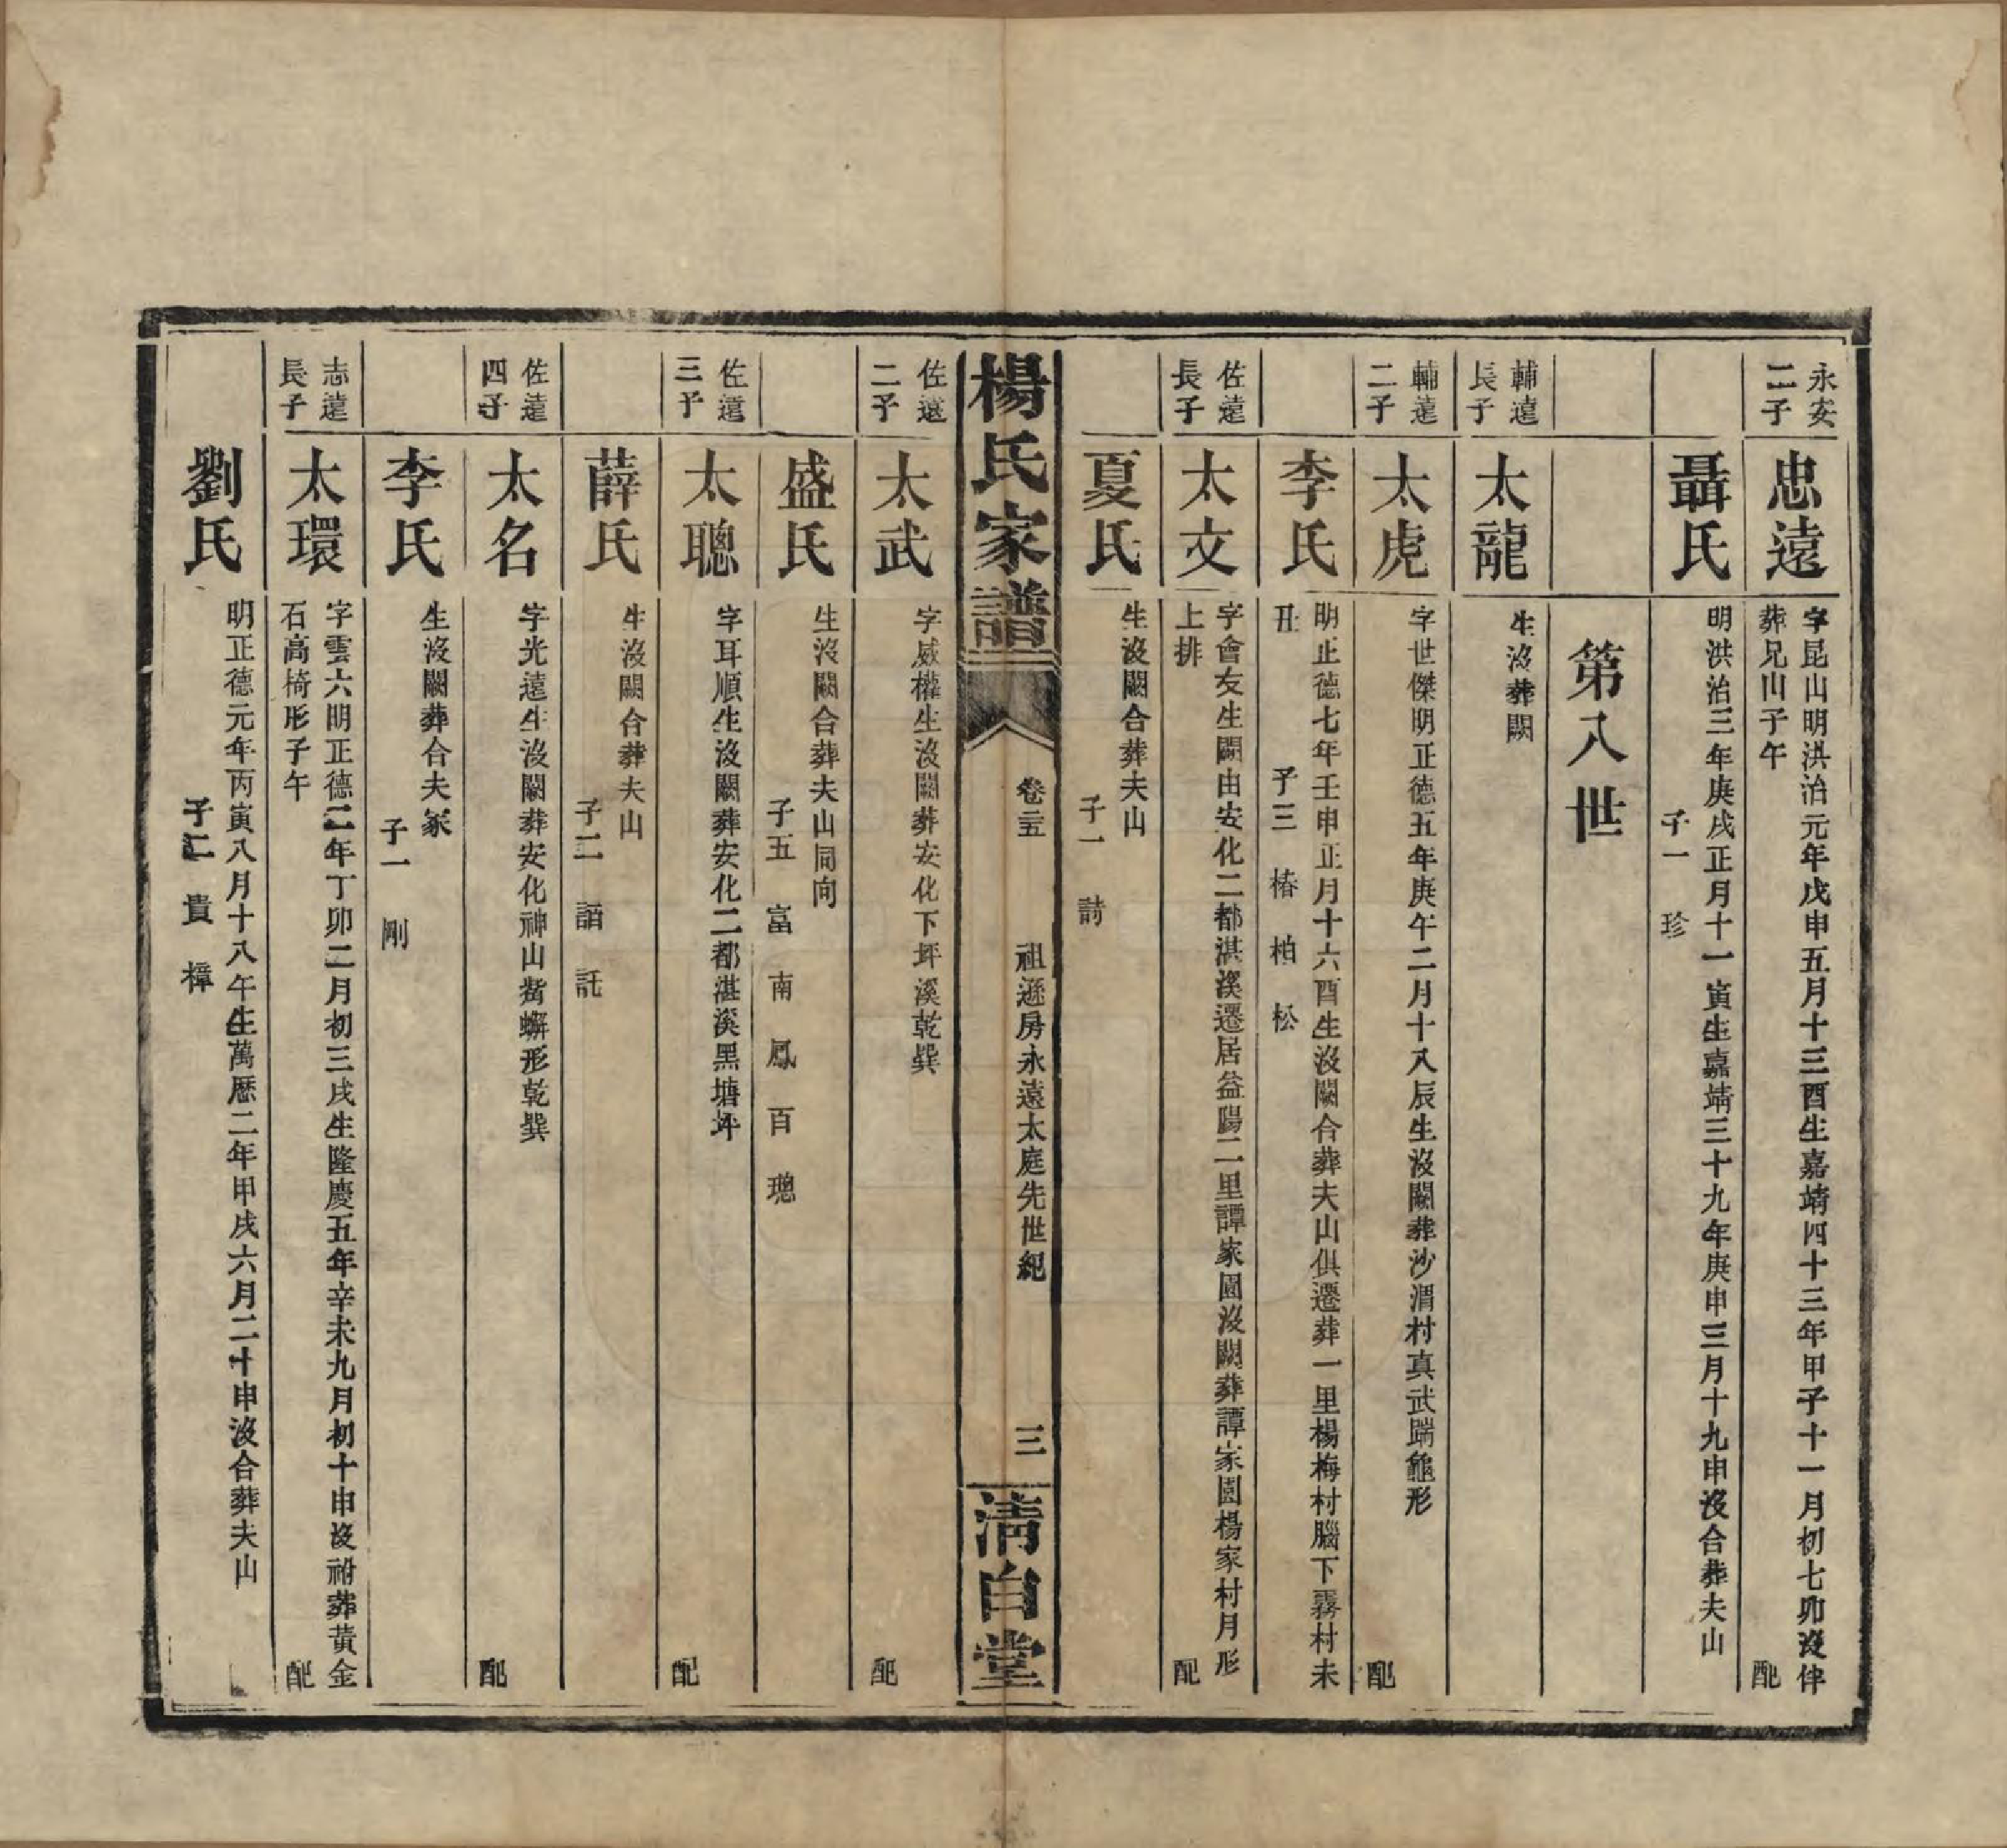 永安
二子
忠遠
字昆山明洪治元年戊申五月十三酉生嘉靖四十三年甲子十一月初七卯沒伴
葬兄山子午
配
聶氏
明洪治三年庚戌正月十一寅生嘉靖三十九年庚申三月十九申沒合葬夫山
子一 珍
第八世
輔遠
長子
太龍
生沒葬闕
輔遠
二子
太虎
字世傑明正德五年庚午二月十八辰生沒闕葬沙渭村真武踹龜形
配
李氏
明正德七年壬申正月十六酉生沒闕合葬夫山俱遷葬一里楊梅村腦下霧村未
丑
子三 椿 柏 松
佐遠
長子
太文
字會友生闕由安化二都湛溪遷居益陽二里譚家園沒闕葬譚家園楊家村月形
上排
配
夏氏
生沒闕合葬夫山
子一 請
楊氏家譜
卷二五
祖遜房永遠太庭先世紀
三
清白堂
佐遠
二子
太武
字威權生沒闕葬安化下坪溪乾巽
配
盛氏
生沒闕合葬夫山同向
子五 富 南 鳳 百 璁
佐遠
三子
太聰
字耳順生沒闕葬安化二都湛溪黑塘坪
配
薛氏
生沒闕合葬夫山
子二 誦 託
佐遠
四子
太名
字光遠生沒闕葬安化神山螃蠏形乾巽
配
李氏
生沒闕葬合夫冢
子一 剛
志遠
長子
太環
字雲六明正德二年丁卯二月初三戌生隆慶五年辛未九月初十申沒祔葬黃金
石高椅形子午
配
劉氏
明正德元年丙寅八月十八午生萬歷二年甲戌六月二十申沒合葬夫山
子二 貴 樟